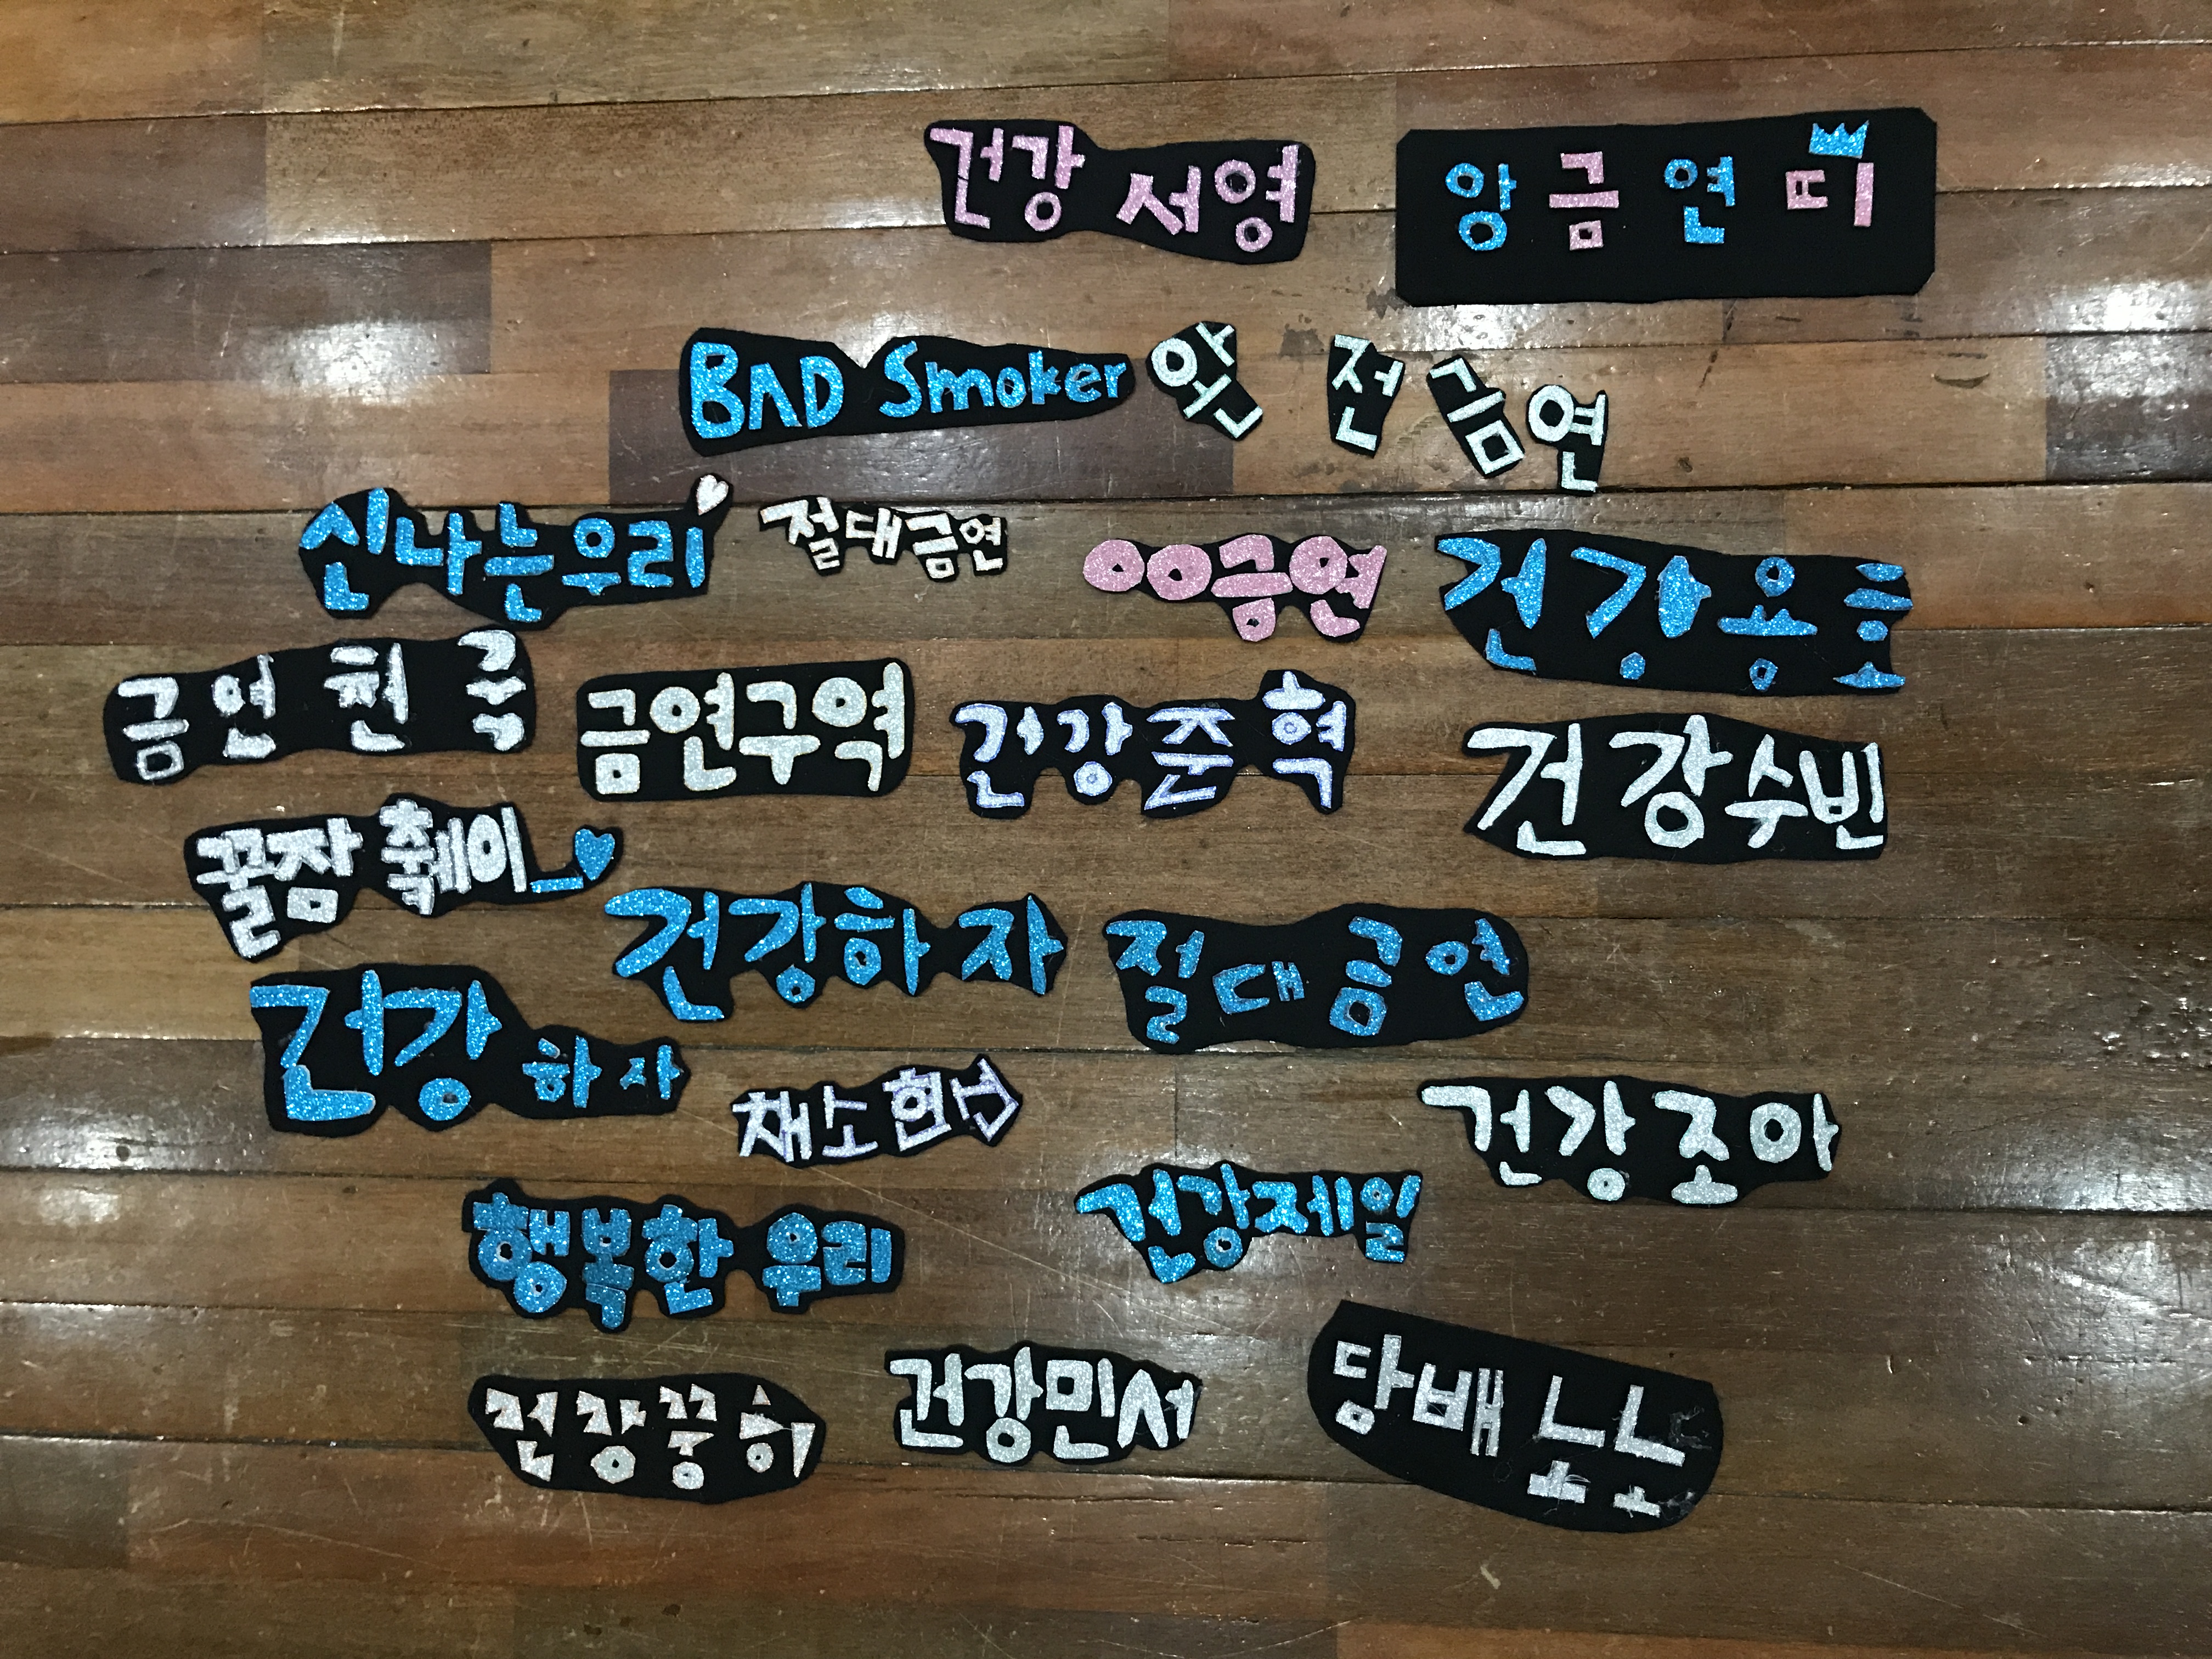 건강 서영
앙 금 연 띠
BAD Smoker
완 전 금 연
신나는우리
절대금연
00금연
건강
금연
금연구역
건강준혁
건강수빈
꿀잠
건강하자
절대금연
건강하자
채소현신
건강조아
행복한 우리
건강제일
건강
건강민서
당배노노